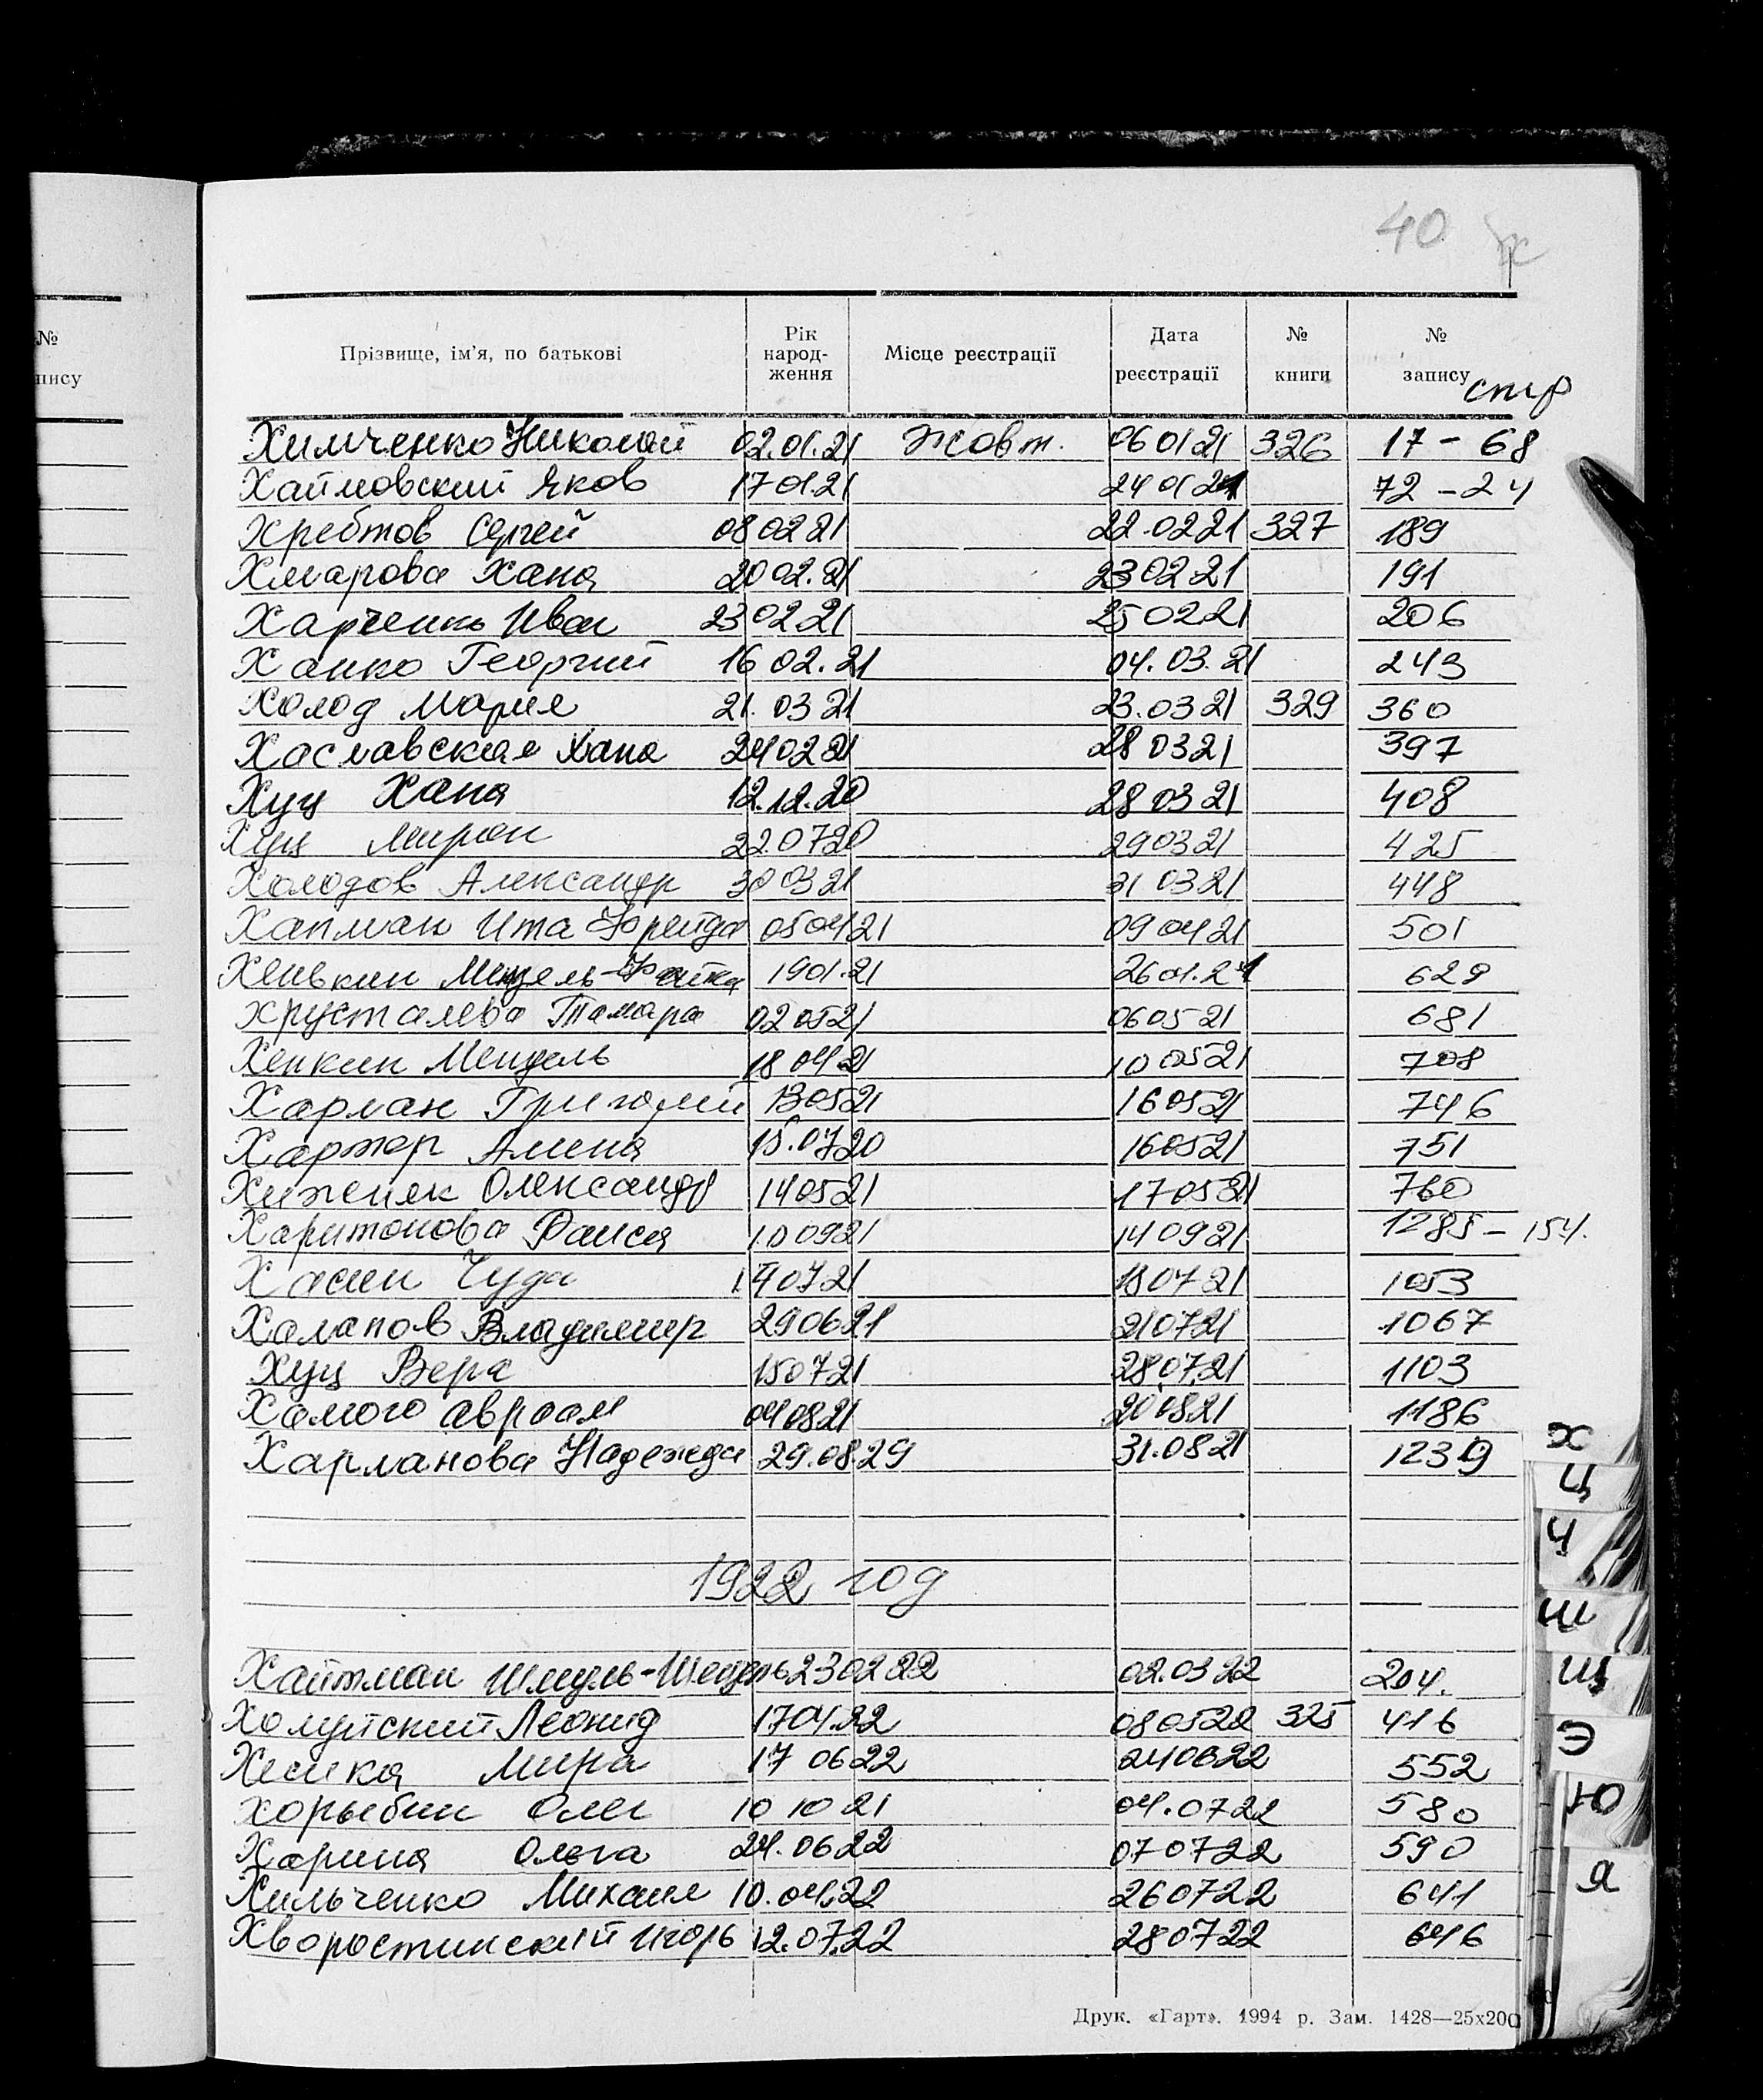 40 Ж
№
пису
Прізвище, ім'я, по батькові Рік народ-ження Місце реєстрації Дата реєстрації № книги № запису стр
Химченко Николай 02.01.21 Жовт. 06 01 21 326 17 - 68
Хаймовский Яков 17 01 21 24 01 21 72 - 24
Хребтов Сергей 08 02 21 22 02 21 327 189
Хмарова Хана 20 02. 21 23 02 21 191
Харченко Иван 23 02 21 25 02 21 206
Ханко Георгий 16 02. 21 04. 03. 21 243
Холод Мария 21. 03 21 23. 03 21 329 360
Хаславская Хана 24 02 21 28 03 21 397
Хуц Хана 12. 12. 20 28 03 21 408
Хуц Мирон 22 07 20 29 03 21 425
Холодов Александр 30 03 21 31 03 21 448
Хапман Ита Фрейда 05 04 21 09 04 21 501
Хенькин Мендель- 19 01. 21 26 01. 21 629
Хрусталева Тамара 02 05 21 06 05 21 681
Хенкин Мендель 18 04 21 10 05 21 708
Харлан Григорий 13 05 21 16 05 21 746
Хартер 15. 07 20 16 05 21 751
Хиженяк Олександр 14 05 21 17 05 21 760
Харитонова Раиса 10 09 21 14 09 21 1285 - 154.
Хасин 14 07 21 18 07 21 1053
Халапов Владимир 29 06 21 21 07 21 1067
Хуц Вера 15 07 21 28 07. 21 1103
Хамого Авраам 04 08 21 20 08 21 1186
Харланова Надежда 29. 08. 29 31. 08 21 1239
1922 год
Хайтман Шмуль- 23 02 22 02. 03 22 204.
Леонид 17 04. 22 08 05 22 325 416
Мира 17 06 22 24 06 22 552
Хорыбин Олег 10 10 21 04. 07 22 580
Харина Ольга 24. 06 22 07 07 22 590
Хильченко Михаил 10. 04. 22 26 07 22 641
Хворостинский Игорь 12. 07. 22 28 07 22 646
Х
Ц
Ч
Ш
Щ
Э
Ю
Я
Друк. «Гарт». 1994 р. Зам. 1428—25х200